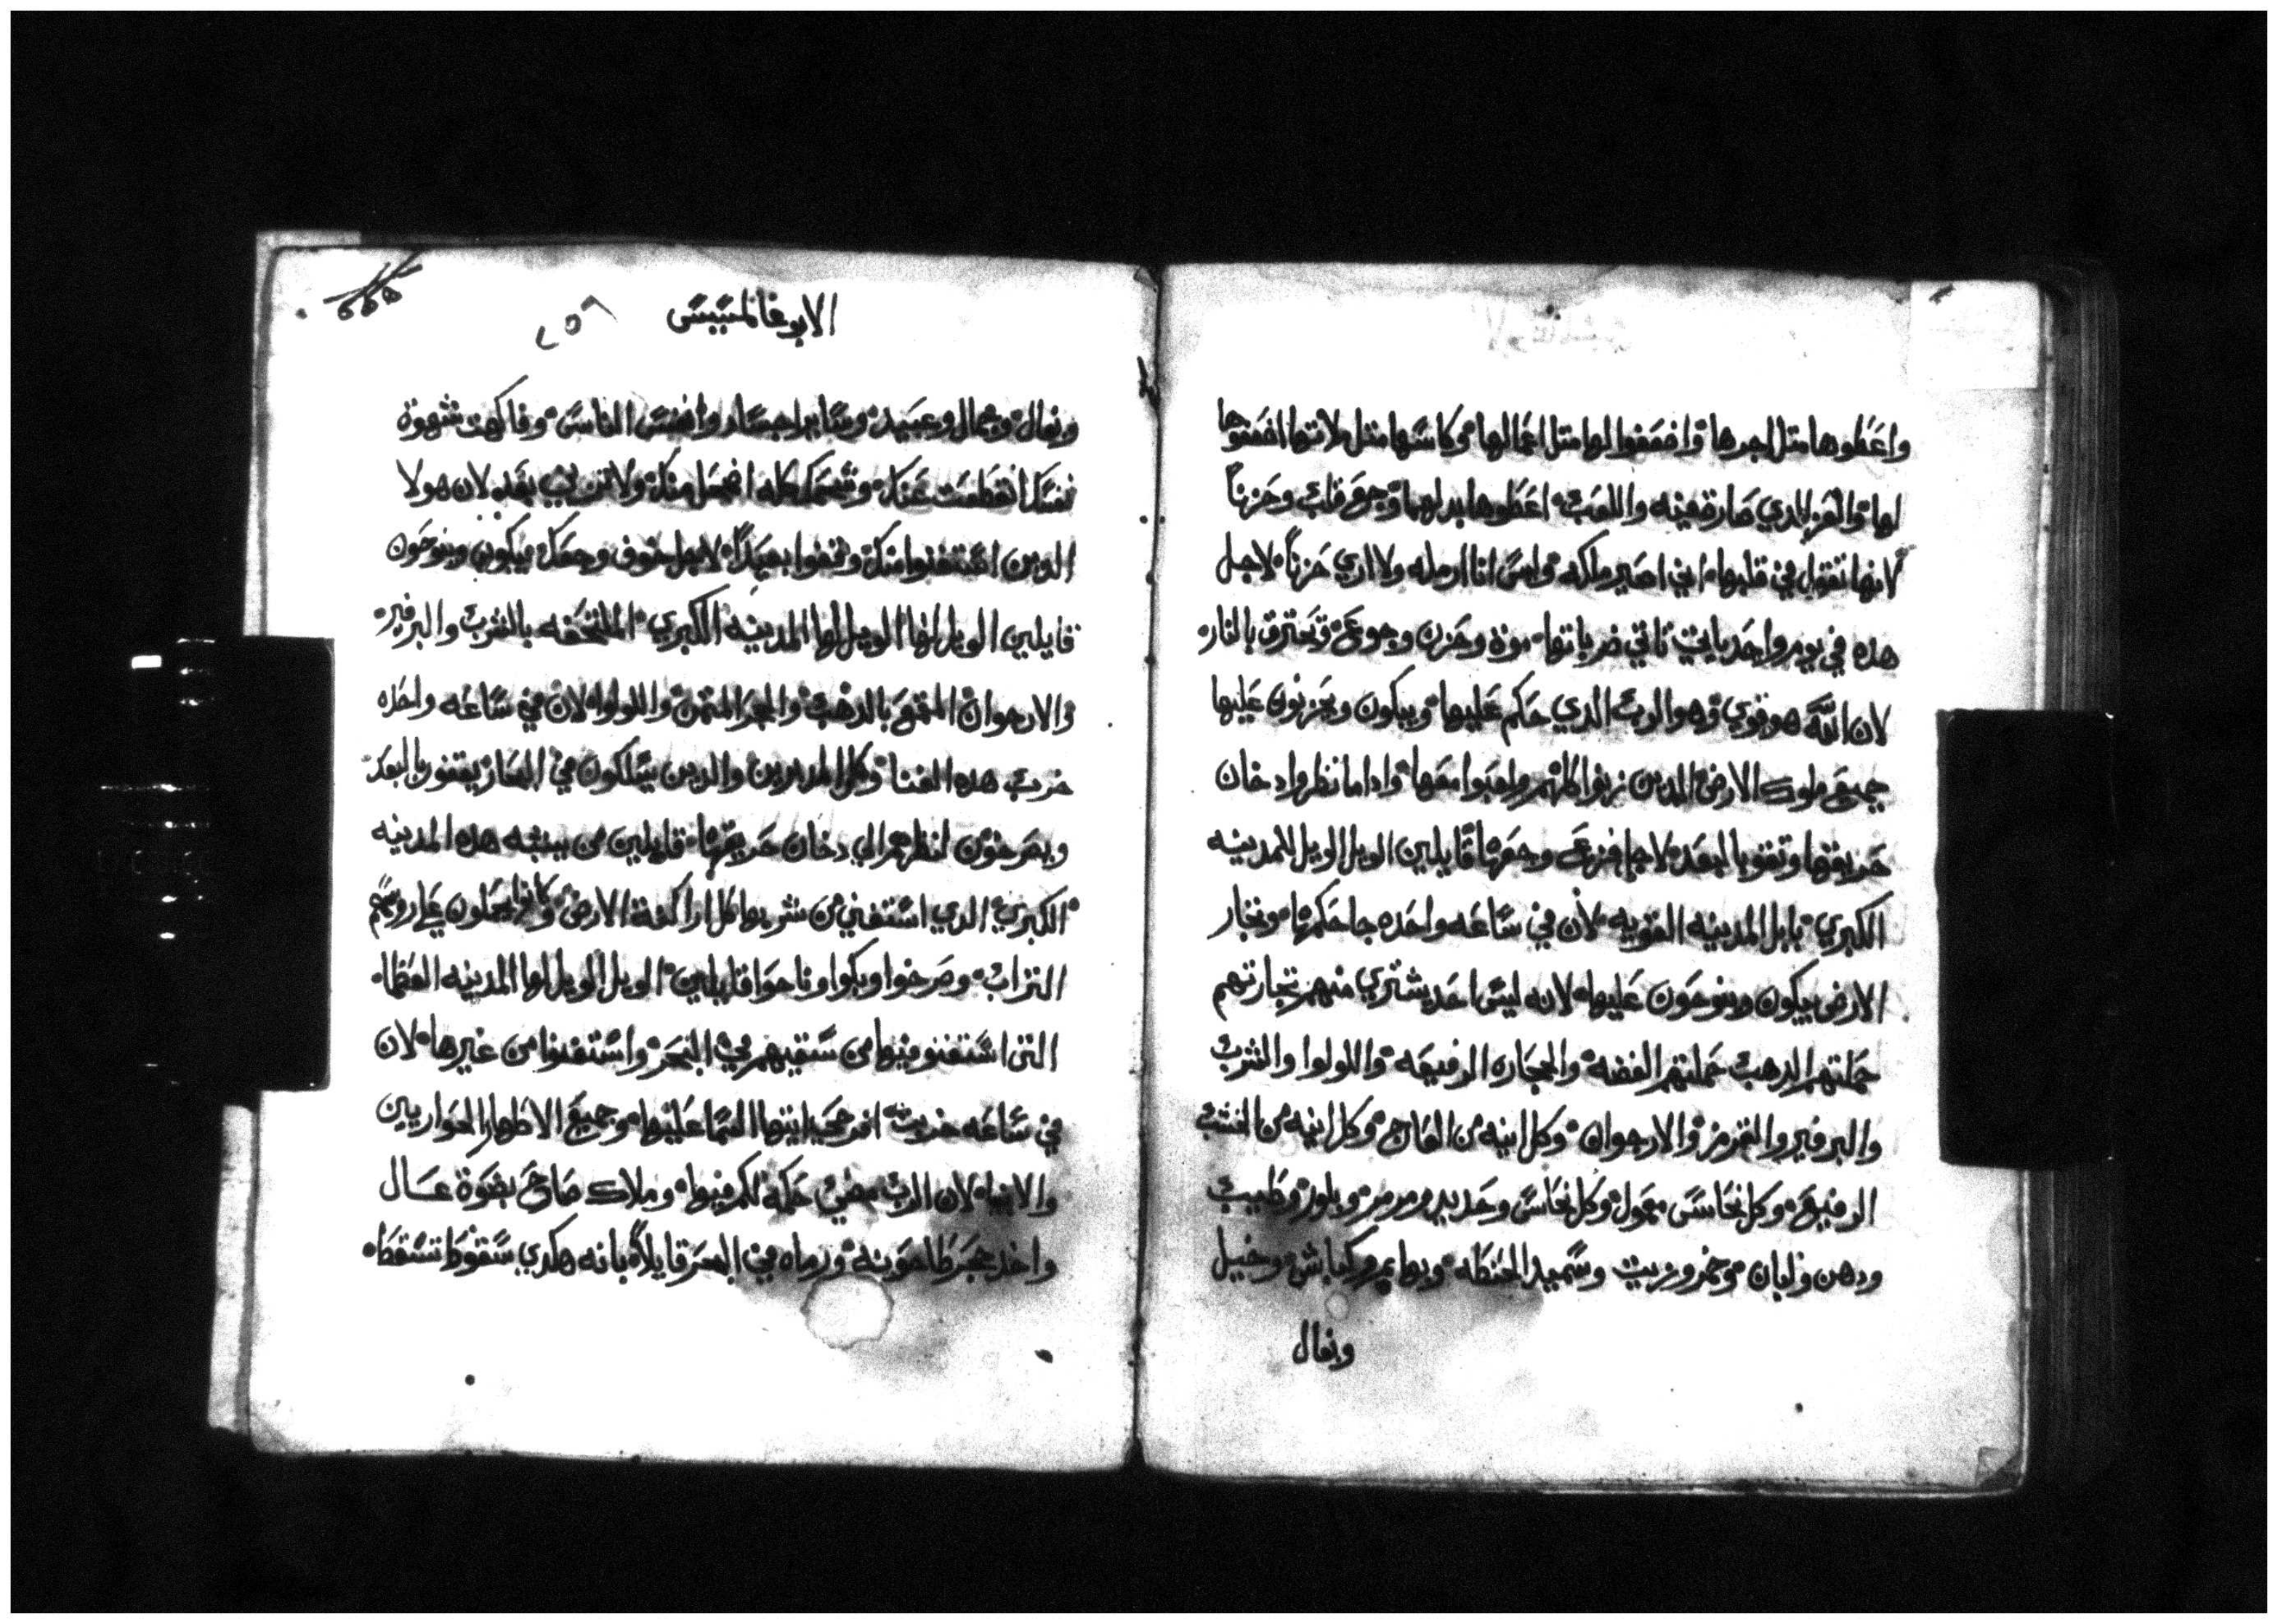 واعطوها متل اجرها وٛاضعفوا لها متل اعمالها وكاسها متل ملاتها اضعفوها
لها والعز الدي صارة فيه واللعب اعطوها بدلهما وجع قلب وحزناً
لانها تقول في قلبها اني اصير ملكه ولس انا ارمله ولا اري حزناً لاجل
هده في يوم واحد ياتي تاتي ضرباتها موة وحزن وجوع وتحترق بالنار
لان الله هو قوي وهو الرب الدي حكم عليها ويبكون ويحزنون عليها
جميع ملوك الارض الدين زنوا كلهم ولعبوا معها وادا ما نظروا دخان
حريقها وتقفو بالبعد لاجل فزع وجعها قايلين الويل الويل للمدينه
الكبري بابل المدينه القويه لان في ساعه واحده جا حكمها وتجار
الارض يبكون وينوحون عليها لانه ليس احد يشتري منهم تجارتهم
حملتهم الدهب حملتهم الفضه والحجاره الرفيعه واللولوا والشرب
والبرفير والقرمز والارجوان وكل انيه من العاج وكل انيه من الخشب
الرفيع وكل نحاس معمول وكل نحاس وحديد ومرمر وبلور وطيب
ودهن ولبان وخمر وزيت وسميد الحنطه وبهايم وكباش وخيل
وبغال
الابوغالمسيس
٢٥٨
وبغال وجمال وعبيد وساير اجساد وانفس الناس وفاكهت شهوة
نفسك انقطعت عنك وشحمك كله اضمحل منك ولا ترىني بعد لان هولا
الدين استغنوا منك وقفوا بعيداً لاجل خوف وجعك يبكون وينوحون
قايلين الويل لها الويل لها المدينه الكبري الملتحفه بالشرب والبرفير
والارجوان المقمع بالدهب والحجر المتمن واللولوا لان في ساعه واحده
خرب هدا الغنا وكل المدبرين والدين يسلكون في البحار يقفون بالبعد
ويصرخون ادا نظرهم الي دخان حريقها قايلين من يشبه هده المدينه
الكبري الدي استغني من شربها كل اراكنة الارض وكانوا يجعلون علي روسهم
التراب وصرخوا وبكوا وناحوا قايلين الويل الويل لها المدينه العظما
التى استغنو منها من سقيهم في البحر واستغنوا من غيرها لان
في ساعه خربت افرحي ايتها السما عليها وجميع الاطهار الحواريين
والانبيا لان الرب مضي حكمه لكم منها وملاك صاح بقوة عال
واخد حجر طاحونه ورماه في البحر قايلاً بانه هكدي سقوط تسقط